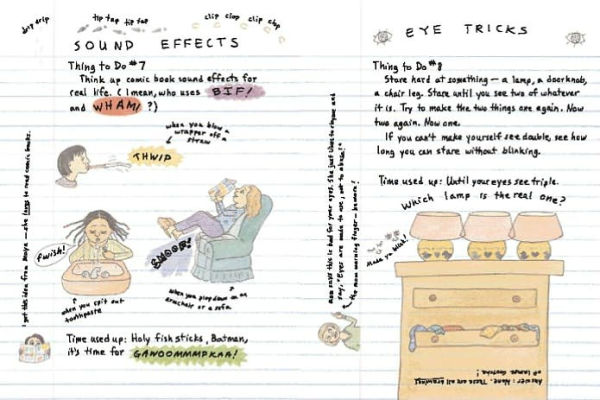 drip drip
tip tap tip tap
clip clop clip clop
SOUND EFFECTS
Thing to Do #7
Think up comic book sound effects for
real life. (I mean, who uses BIF!
and WHAM! ?)
when you blow a
wrapper off a
straw
THWIP
FWISH!
when you spit out
toothpaste
when you plop down on an
armchair or a sofa
I got this idea from Maya — she loves to read comic books.
Time used up: Holy fish sticks, Batman,
it's time for GAWOOMMMPKAA!
EYE TRICKS
Thing to Do #8
Stare hard at something — a lamp, a doorknob,
a chair leg. Stare until you see two of whatever
it is. Try to make the two things one again. Now
two again. Now one.
If you can't make yourself see double, see how
long you can stare without blinking.
Time used up: Until your eyes see triple.
Which lamp is the real one?
Made you blink!
Mom says this is bad for your eyes. She just likes to
say, "Eyes are made to use, not to abuse!"
the mom warning finger — beware!
Answer: None. These are all drawings
of lamps. Gotcha!